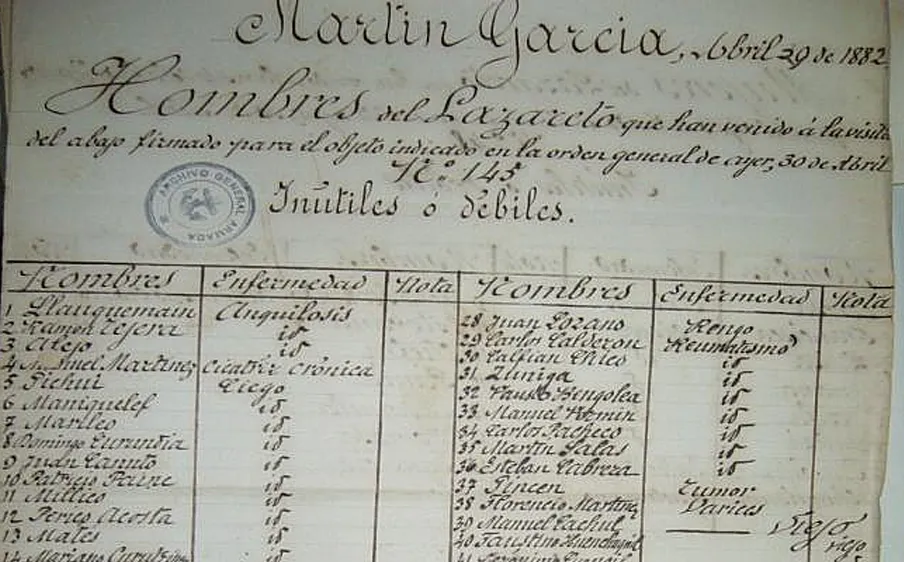 Martin Garcia, Abril 29 de 1882
Hombres del Lazareto que han venido á la visita
del abajo firmado para el objeto indicado en la orden general de ayer, 30 de Abril
Nº 145
ARCHIVO GENERAL ARMADA
Inútiles ó débiles.
Nombres Enfermedad Nota Nombres Enfermedad Nota
1 Llauquemain Anquilosis 28 Juan Lozano Rengo
2 Ramon Tejera id 29 Carlos Calderon Reumatismo
3 Alejo id 30 Calfian Chico id
4 Manuel Martinez Cicatriz Crónica 31 Zuniga id
5 Pichui Ciego 32 Fausto id
6 Maniquelef id 33 Manuel id
7 Marileo id 34 Carlos Pacheco id
8 Domingo id 35 Martin Salas id
9 Juan id 36 Esteban Cabrera id
10 Patricio Paine id 37 Pincen Tumor
11 Millico id 38 Florencio Martinez Varices
12 Perico Acosta id 39 Manuel viejo
13 Mates id 40 Faustino viejo
14 Mariano id 41